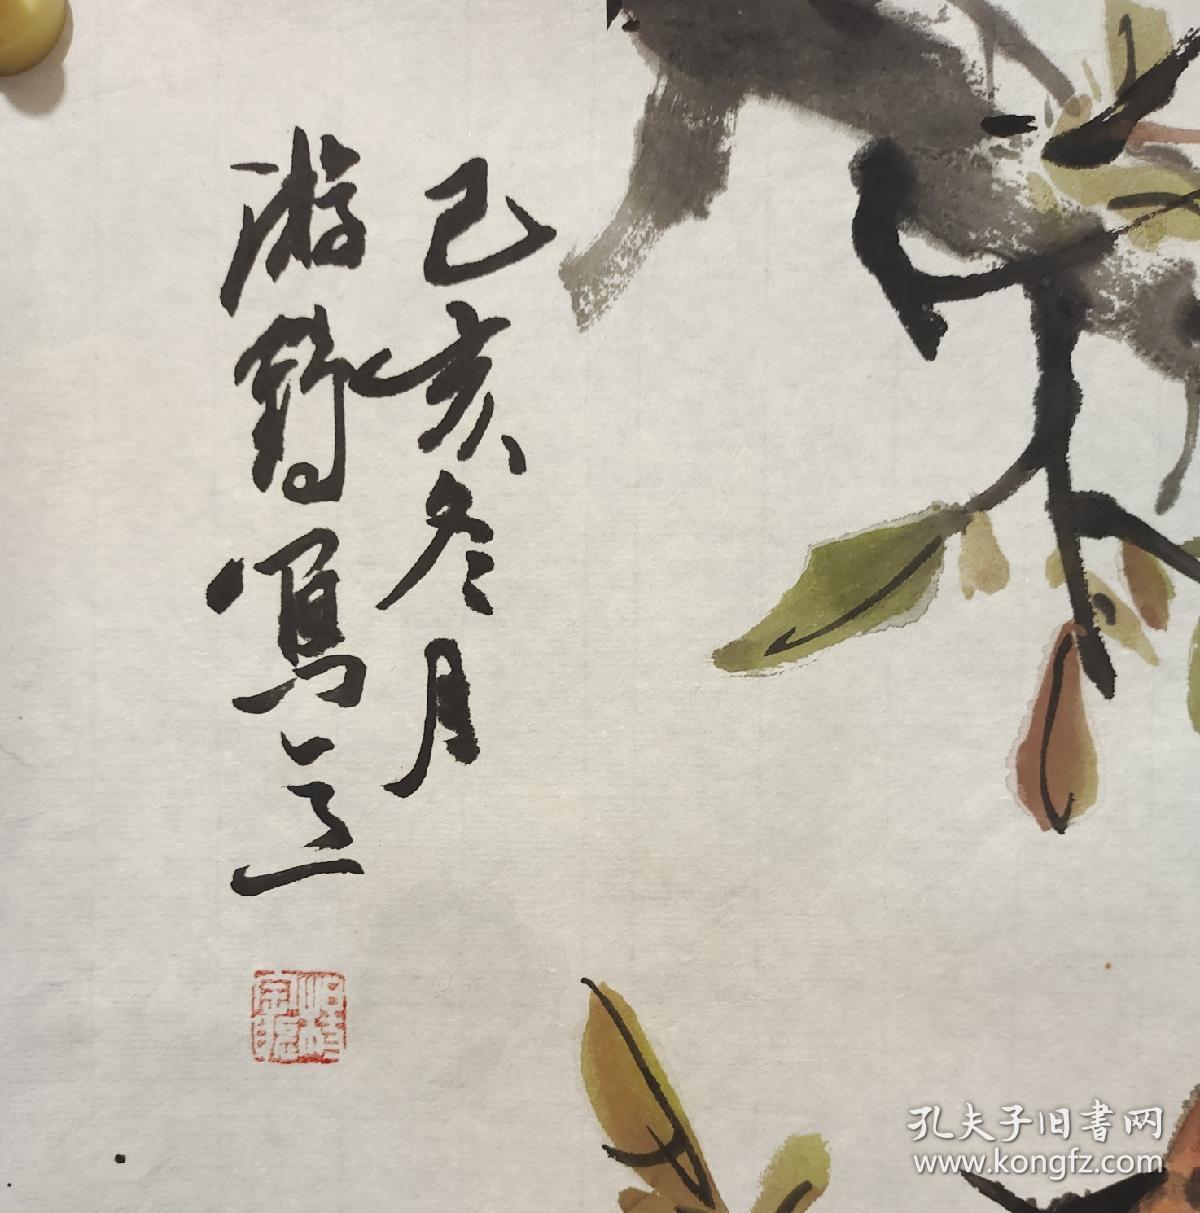 己亥冬月
游鹤写意
孔夫子旧書网
www.kongfz.com